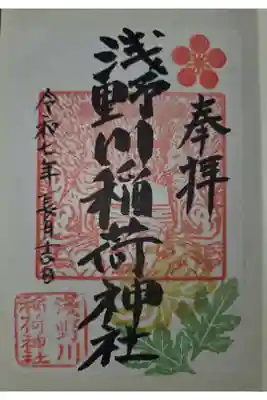 奉拝
浅野川稲荷神社
令和七年 長月吉日
浅野川
稲荷神社